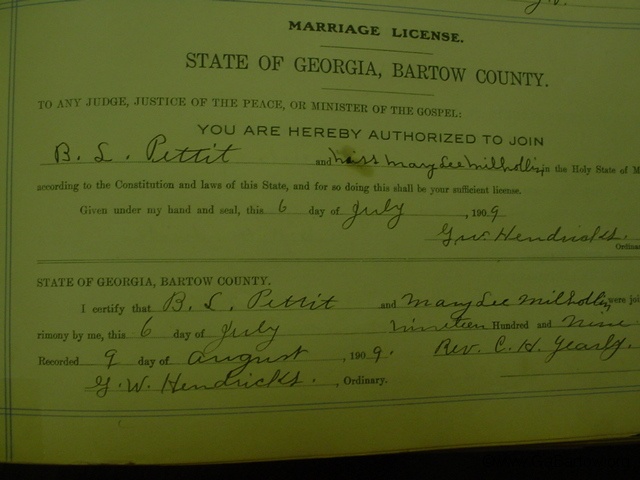 MARRIAGE LICENSE.
STATE OF GEORGIA, BARTOW COUNTY.
TO ANY JUDGE, JUSTICE OF THE PEACE, OR MINISTER OF THE GOSPEL:
YOU ARE HEREBY AUTHORIZED TO JOIN
B. L. Pettit and Miss Mary Lee Milhollin in the Holy State of M
according to the Constitution and laws of this State, and for so doing this shall be your sufficient license.
Given under my hand and seal, this 6 day of July, 1909
G. W. Hendricks.
Ordinar
STATE OF GEORGIA, BARTOW COUNTY.
I certify that B. L. Pettit and Mary Lee Milhollin were joi
rimony by me, this 6 day of July nineteen Hundred and Nine
Recorded 9 day of August, 1909. Rev. C. H. Yearly.
G. W. Hendricks., Ordinary.